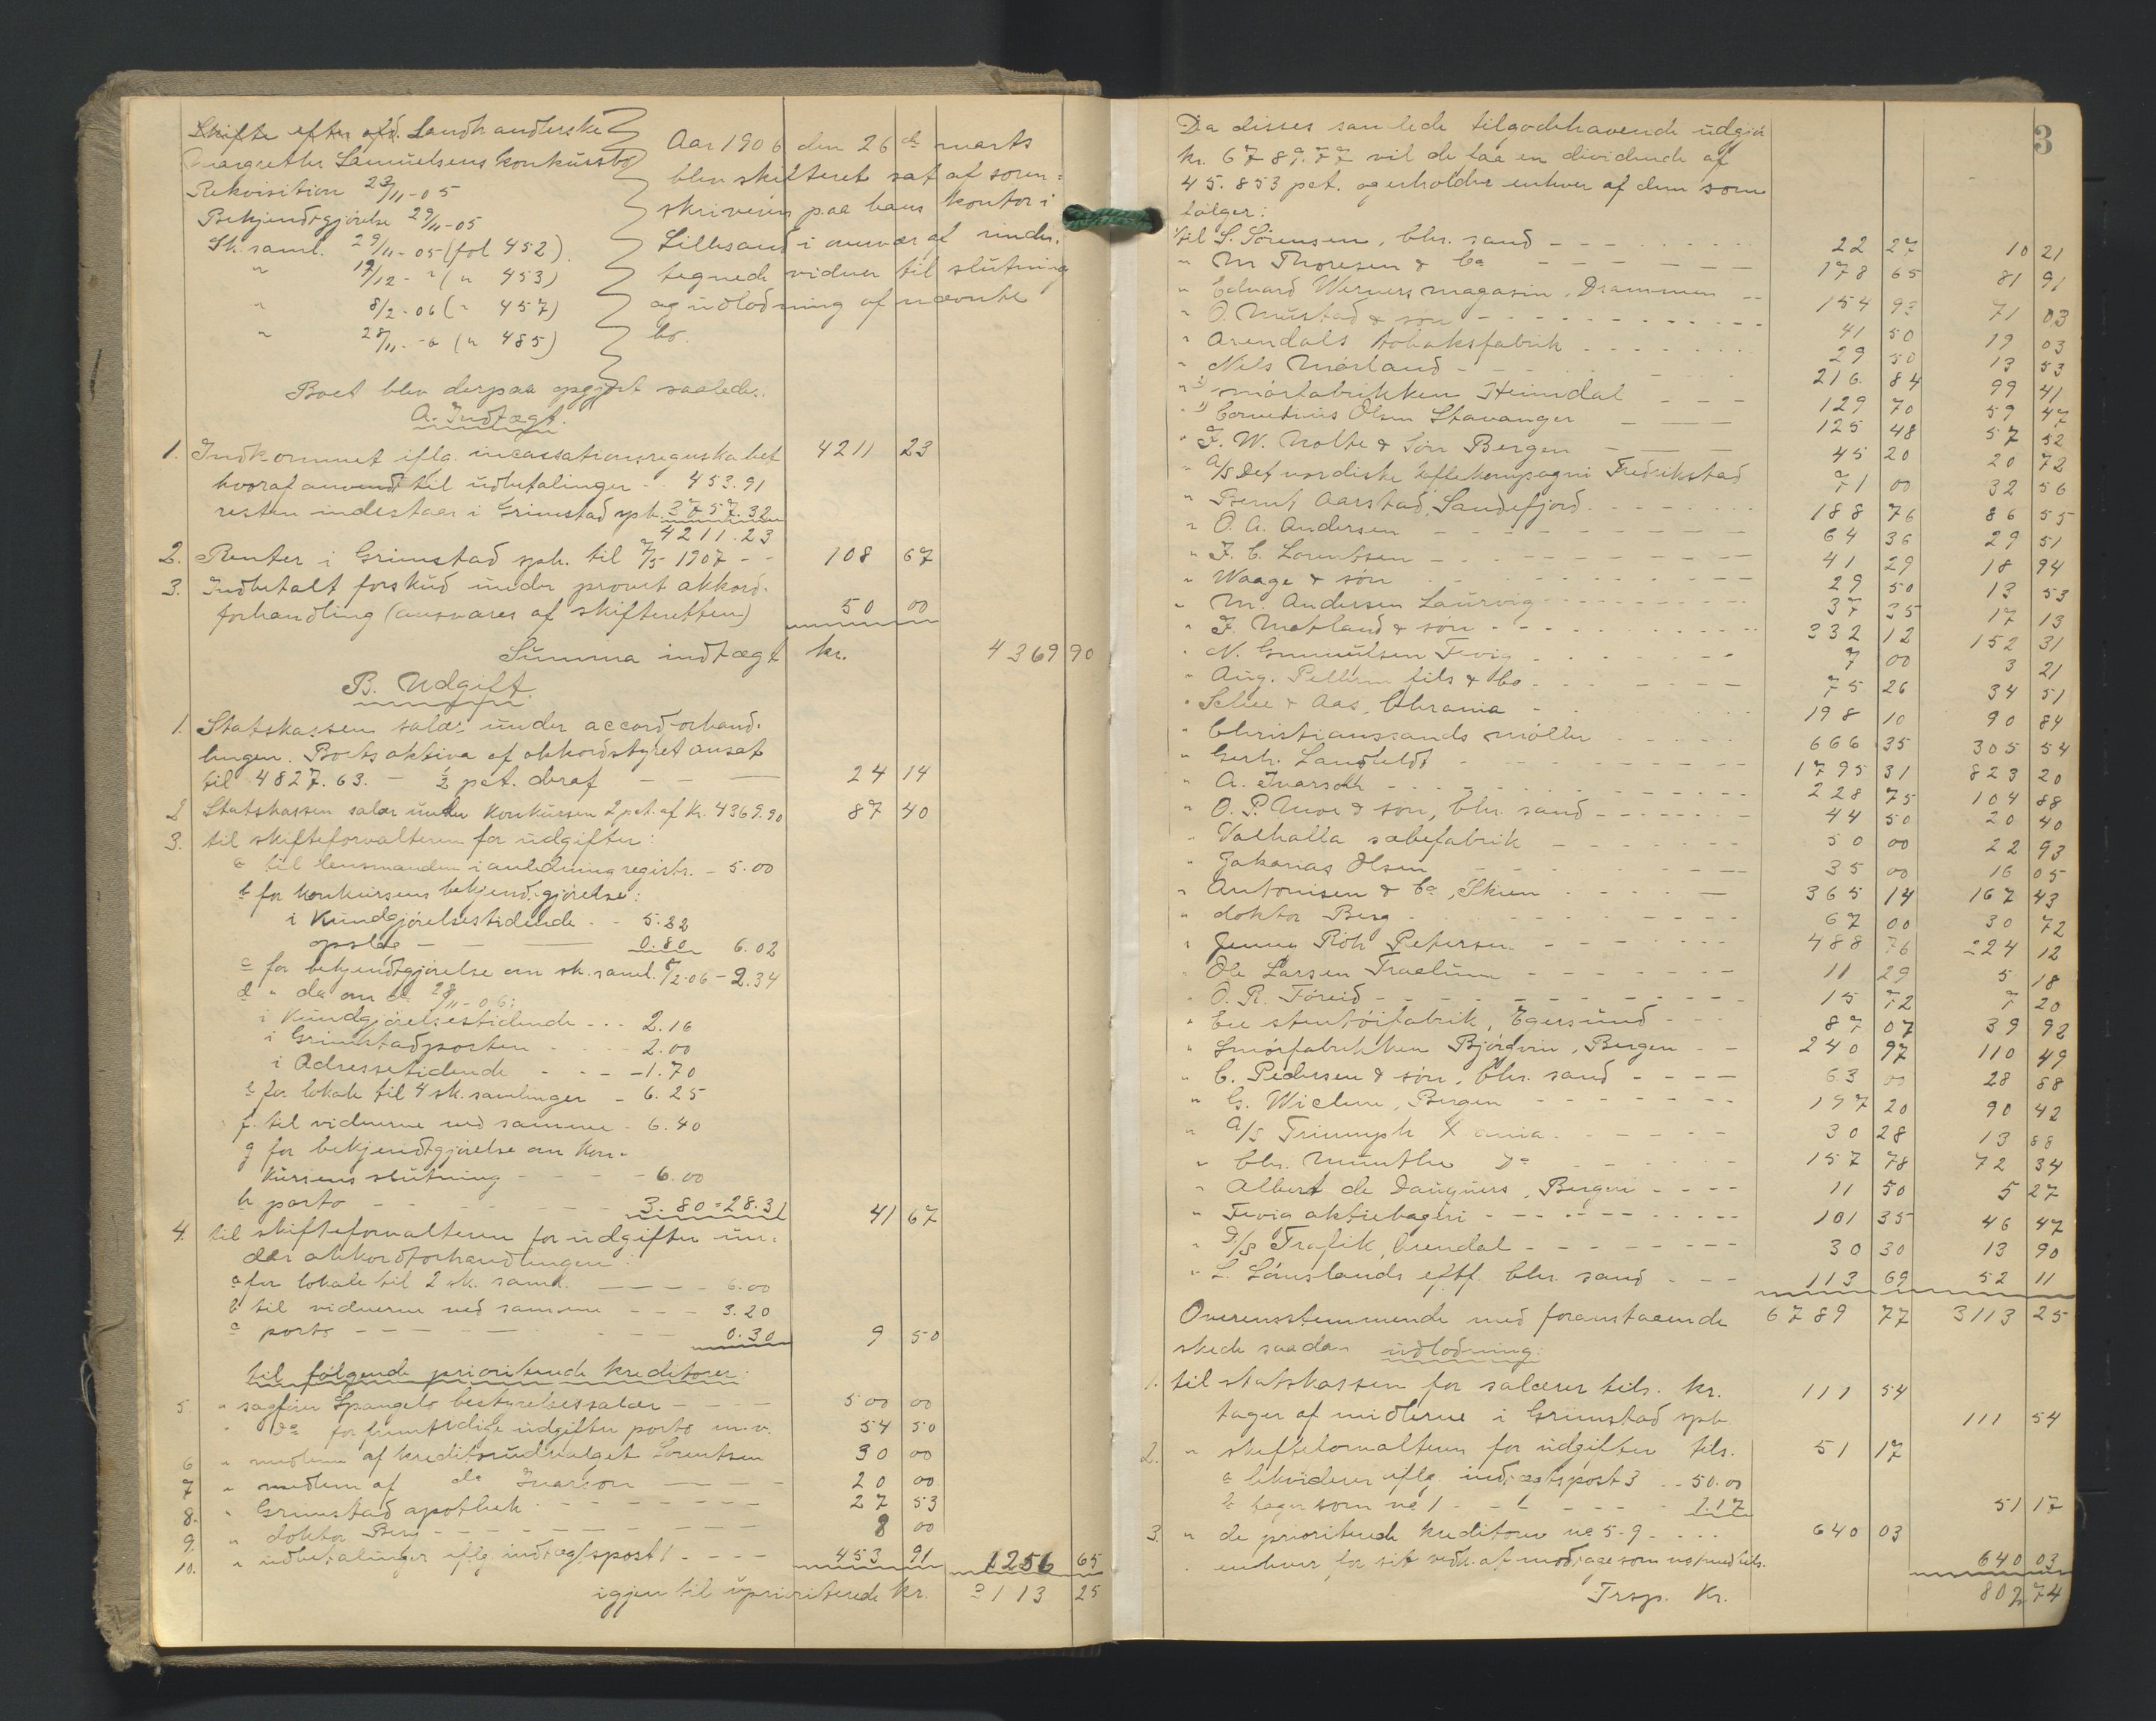 Skifte efter afd. Landhandlerske
Margrethe Samuelsens konkursbo
Rekvisition 23/11-05
Bekjendtgjørelse 29/11-05
Sk. saml. 29/11-05 (fol 452).
" 19/12 - " (" 453)
" 8/2-06 (" 457)
" 28/11-6 (" 485)
Aar 1906 den 26de marts
blev skifteret sat af soren-
skriveren paa hans kontor i
Lillesand i overvær af under-
tegnede vidner til slutning
og udlodning af nævnte
bo.
Boet blev derpaa opgjort saaledes:
A. Indtægt.
1. Indkommet iflg. incassationsregnskabet 4211 23
hvoraf anvendt til udbetalinger - 453.91
resten indestaar i Grimstad spb. 3757.32
4211.23
2. Renter i Grimstad spb. til 7/5 1907 - - 108 67
3. Indbetalt forskud under prøvet akkord-
forhandling (ansvares af skifteretten) 50 00
Summa indtægt kr. 4369 90
B. Udgift.
1. Statskassen salær under accordforhand-
lingen. Boets aktiva af akkordstyret ansat
til 4827.63. - ½ pct. deraf - - - 24 14
2 Statskassen salær under konkursen 2 pct. af Kr. 4369.90 87 40
3. til skifteforvalteren for udgifter:
a til lensmanden i anledning registr. - 5.00
b for konkursens bekjendtgjørelse:
i Kundgjørelsestidende - - 5.22
opslag - - 0.80 6.02
c for bekjendtgjørelse om sk. saml. 8/2-06 - 2.34
d " do om do 28/11-06:
i Kundgjørelsestidende - - - 2.16
i Grimstadposten - - - 2.00
i Adressetidende - - - 1.70
e for lokale til 4 sk. samlinger - 6.25
f. til vidnerne ved samme - 6.40
g for bekjendtgjørelse om kon-
kursens slutning - - - 6.00
h porto - - - 3.80 = 28.31 41 67
4. til skifteforvalteren for udgifter un-
der akkordforhandlingen:
a for lokale til 2 sk. saml. - - 6.00
b til vidnerne ved samme - - - 3.20
c porto - - - 0.30 9 50
til følgende prioriterede kreditorer:
5. " sagfører Spangelo bestyrelsessalær - - - 500 00
" do for fremtidige udgifter porto m.v. 54 50
6 " medlem af kreditorudvalget Lorentsen 30 00
7 " medlem af do Ivarson - - - 20 00
8. " Grimstad apothek - - - 27 53
9. " doktor Berg - - - 8 00
10. " udbetalinger iflg. indtægtspost 1 - - - 453 91 1256 65
igjen til uprioriterede kr. 3113 25
3
Da disses samlede tilgodehavende udgjør
kr. 6789.77 vil de faa en dividende af
45.853 pct. og erholder enhver af dem som
følger:
til S. Sörensen, Chr. sand - - - 22 27 10 21
" M Thoresen & Co - - - 178 65 81 91
" Edvard Werners magasin, Drammen - - 154 93 71 03
" O. Mustad & søn - - - 41 50 19 03
" Arendals tobaksfabrik - - - 29 50 13 53
" Nils Mørland - - - 216 84 99 41
" Smørfabrikken Heimdal - - - 129 70 59 47
" Cornelius Olsen Stavanger - - - 125 48 57 52
" F. W. Nolte & Søn Bergen - - - 45 20 20 72
" A/S Det nordiske kaffekompagni Fredrikstad 71 00 32 56
" Bernt Aarstad, Sandefjord - - - 188 76 86 55
" O. A. Andersen - - - 64 36 29 51
" J. C. Lorentsen - - - 41 29 18 94
" Waage & søn - - - 29 50 13 53
" M. Andersen Laurvig - - - 37 35 17 13
" J. Metland & søn - - - 332 12 152 31
" N. Gunnulsen Fevig - - - 7 00 3 21
" Aug. Pellerin fils & Co - - - 75 26 34 51
" Schee & Aas, Chrania - 198 10 90 84
" Christianssands møller - - - 666 35 305 54
" Gerh. Landfeldt - - - 1795 31 823 20
" A. Ivarson - - - 228 75 104 88
" O. P. Moe & søn, Chr. sand - - - 44 50 20 40
" Valhalla sæbefabrik - - - 50 00 22 93
" Johannes Olsen - - - 35 00 16 05
" Antonisen & Co, Skien - - - 365 14 167 43
" doktor Berg - - - 67 00 30 72
" Jenny Röh Petersen - - - 488 76 224 12
" Ole Larsen Traelum - - - 11 29 5 18
" O. R. Föreid - - - 15 72 7 20
" Eie stentöifabrik, Egersund - - - 87 07 39 92
" Smørfabrikken Bjørdvin, Bergen - - 240 97 110 49
" C. Pedersen & søn, Chr. sand - - - 63 00 28 88
" G. Michne, Bergen - - - 197 20 90 42
" A/S Triumph Xania - - - 30 28 13 88
" Chr. Munthe Do - - - 157 78 72 34
" Albert de Jauquers, Bergen - - - 11 50 5 27
" Fevig aktiebageri - - - 101 35 46 47
" D/S Trafik, Arendal - - - 30 30 13 90
" L. Lønslands eftf. Chr. sand - - - 113 69 52 11
Overensstemmende med foranstaaende 6789 77 3113 25
skede saadan udlodning:
1. til statskassen for salærer tils. kr. 111 54
tages af midlerne i Grimstad spb 111 54
2. " skifteforvalteren for udgifter tils. 51 17
a likvideres iflg. indtægtspost 3 - - 50.00
b tages som no 1 - - - 1.17 51 17
3. " de prioriterede kreditorer no 5-9 - - - 640 03
enhver for sit vedk. af modtage som no 1 med tils. 640 03
Trsp. Kr. 802 74